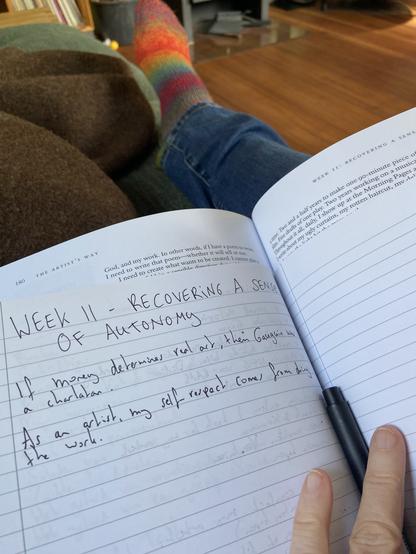 180 THE ARTIST'S WAY
God, and my work. In other words, if I have a poem to write,
I need to write that poem—whether it will sell or not.
I need to create what wants to be created. I cannot
WEEK 11: RECOVERING A SEN
to make one 90-minute piece of
Two years working on a musical
daily. I show up at the Morning Pages
my ugly curtains, my rotten haircut, my
WEEK 11 - RECOVERING A SENSE
OF AUTONOMY
If money determines real art, then Gauguin was
a charlatan.
As an artist, my self respect comes from doing
the work.